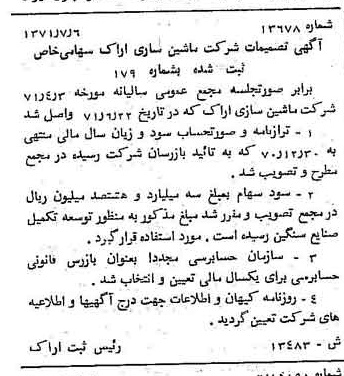 شماره ۱۳۶۷۸ ۱۳۷۱/۷/۶
آگهی تصمیمات شرکت ماشین سازی اراک سهامی‌خاص
ثبت شده بشماره ۱۷۹
برابر صورتجلسه مجمع عمومی سالیانه مورخه ۷۱/۴/۳
شرکت ماشین سازی اراک که در تاریخ ۷۱/۶/۲۲ واصل شد
۱ - ترازنامه و صورتحساب سود و زیان سال مالی منتهی
به ۷۰/۱۲/۳۰ که به تائید بازرسان شرکت رسیده در مجمع
مطرح و تصویب شد .
۲ - سود سهام بمبلغ سه میلیارد و هشتصد میلیون ریال
در مجمع تصویب و مقرر شد مبلغ مذکور به منظور توسعه تکمیل
صنایع سنگین رسیده است . مورد استفاده قرار گیرد .
۳ - سازمان حسابرسی مجددا بعنوان بازرس قانونی
حسابرسی برای یکسال مالی تعیین و انتخاب شد .
۴ - روزنامه کیهان و اطلاعات جهت درج آگهیها و اطلاعیه
های شرکت تعیین گردید .
ش - ۱۳۴۸۳ رئیس ثبت اراک